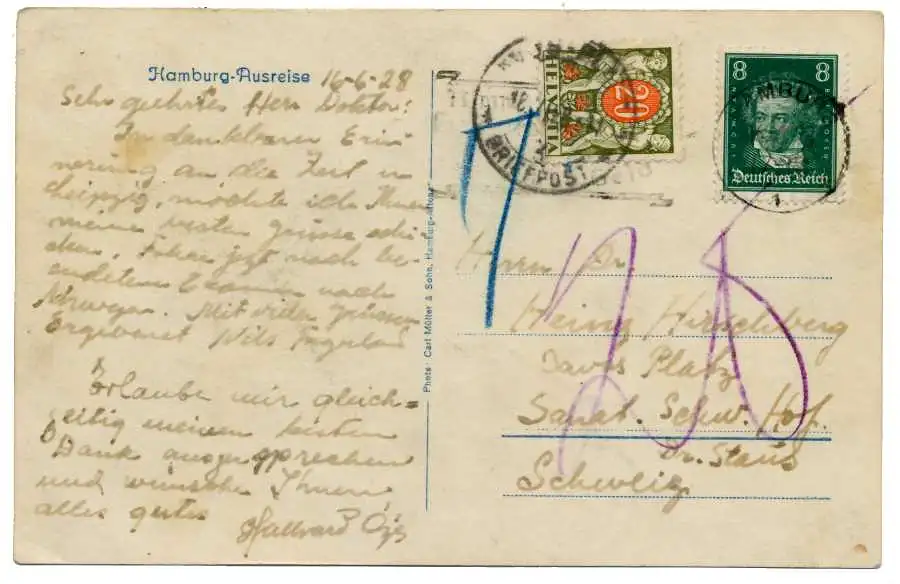 Hamburg-Ausreise
16-6-28
Sehr geehrtes Herr Doktor!
In dankbarer Erin
nerung an die Zeit in
Leipzig, möchte ich Ihnen
meine besten Grüsse schi-
cken. Fahre jetzt nach be-
endetem Examen nach
Norwegen. Mit vielen Grüssen
Ergebenst Nils
Erlaube mir gleich=
zeitig meinen besten
Dank auszusprechen
und wünsche Ihnen
alles gutes
Hallvard
Photo: Carl Müller & Sohn, Hamburg-Altona
HELVETIA
20
BRIEFPOST
8 8
Deutsches Reich
1
T
Herrn Dr.
Heinz Hirschberg
Davos Platz
Sanat. Schw. Hof.
Dr. Staub
Schweiz